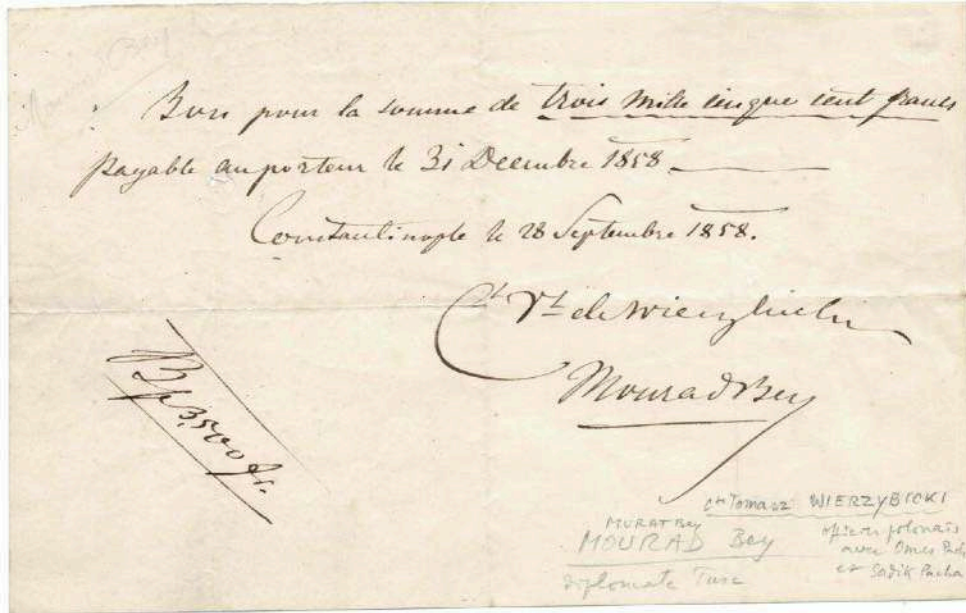 Mourad Bey
Bon pour la somme de trois mille cinque cent francs
payable au porteur le 31 Decembre 1858.
Constantinople le 28 Septembre 1858.
Ct Vt de Wierzbicki
Mourad Bey
Bp 3,500 fr.
cte Tomasz WIERZYBICKI
MURAT Bey
officier polonais
MOURAD Bey
avec Omer Pacha
et Sadik Pacha
diplomate Turc